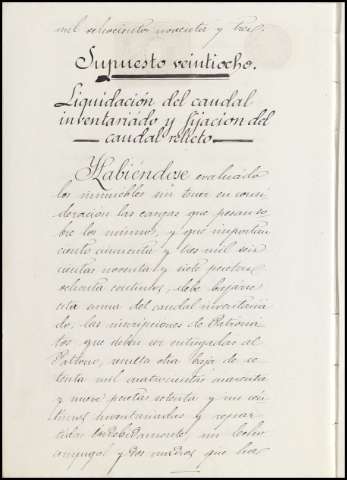 mil ochocientos noventa y tres.
Supuesto veintiocho.
Liquidación del caudal
inventariado y fijacion del
caudal relicto
Habiéndose evaluado
los inmuebles sin tener en consi
deración las cargas que pesan so
bre los mismos, y que importan
ciento cincuenta y tres mil seis
cientas noventa y siete pesetas
setenta centimos, debe bajarse
esta suma del caudal inventaria
do; las inscripciones de Patrona
tos que deben ser entregadas al
Patrono, resulta otra baja de
mil cuatrocientas cuarenta
y nueve pesetas setenta y un cén
timos inventariadas y repar
tidas indebidamente, un lecho
conyugal y dos que ha